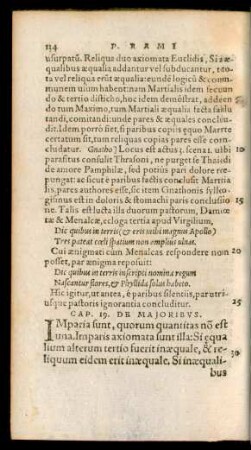 134 P. RAMI
usurpatũ. Reliqua duo axiomata Euclidis, Si æ-
qualibus æqualia addantur vel subducantur, to-
ta vel reliqua erũt æqualia: eundẽ logicũ & com-
munem usum habent: nam Martialis idem secun
do & tertio disticho, hoc idem demõstrat, adden
do tum Maximo, tum Martiali æqualia fecta salu
tandi, comitandi: unde pares & æquales concluditur.
Idem porrò siet, si paribus copiis equo Marrte
certatum sit, tum reliquas copias pares esse con-
cludatur. Gnatho) Locus est actu 3. scena 1. ubi
parasitus consulit Thrasoni, ne purget se Thaidi
de amore Pamphilæ, sed potius pari dolore re-
pungat: ac sicut è paribus factis conclusit Martia
lis, pares authores esse, sic item Gnathonis sylleo-
gismus est in doloris & stomachi paris conclusio
ne. Talis est lucta illa duorum pastorum, Damœ
tæ & Menalcæ, ecloga tertia apud Virgilium,
Dic quibus in terris (& erit mihi magnus Apollo)
Tres pateat cœli spatium non amplius ulnas.
Cui ænigmati cùm Menalcas respondere non
posset, par ænigma reposuit:
Dic quibus in terris inscripti nomina regum
Nascantur flores, & Phyllida solus habeto.
Hic igitur, ut antea, è paribus silentiis, par utri-
usque pastoris ignorantia concluditur.
CAP. 19. DE MAJORIBVS.
IMparia sunt, quorum quantitas nõ est
una. Imparis axiomata sunt illa: Si equa
lium alterum tertio fuerit inæquale, & re-
liquum eidem erit inæquale. Si inæquali-
bus
20
25
30